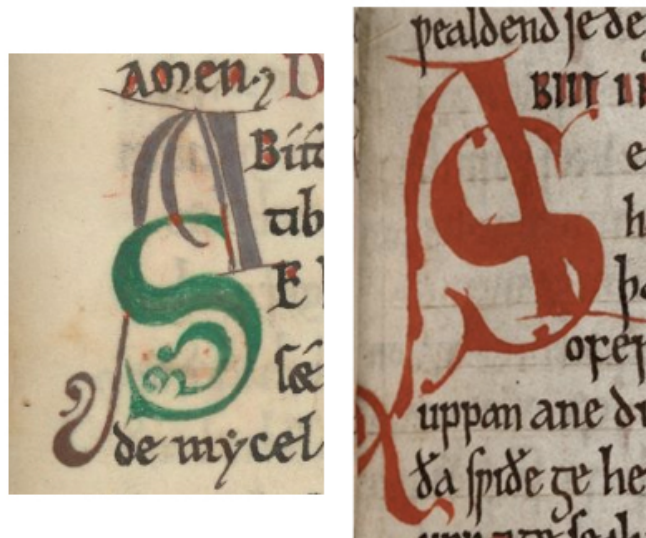 Amen; D
A Biit
tib
S E
sæ
de mẏcel
ƿealdend se de
A BIIT
S e
h
þa
ofer
uppan ane du
ða sƿiðe ge he